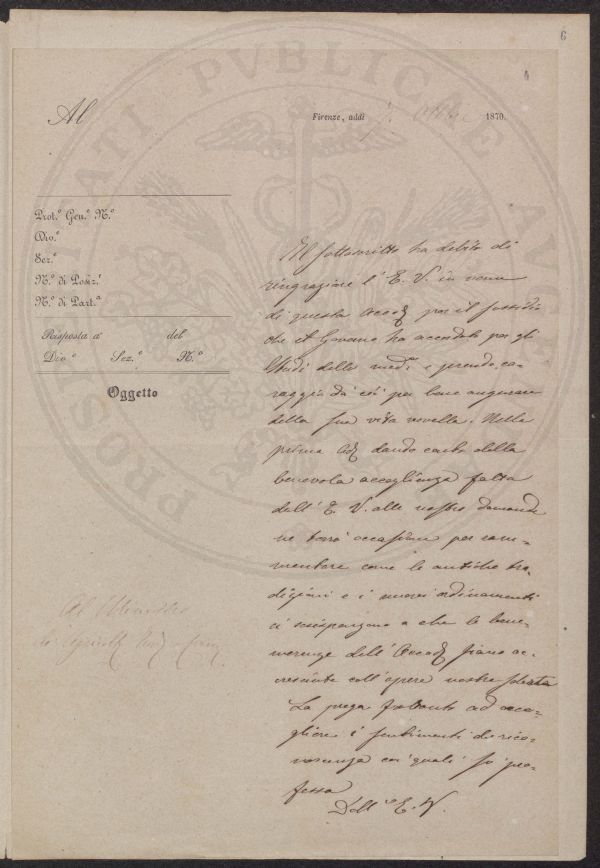 6
PROSPERITATI PVBLICAE AVG
Al
Firenze, addì 7. Ottbre 1870.
Prot.º Gen.º N.º
Div.º
Sez.º
N.º di Posiz.º
N.º di Part.ª
Risposta a del
Div.º Sez.º N.º
Oggetto
Il sottoscritto ha debito di
ringraziare l'E. V. in nome
di questa Accad per il sussidio
che il Governo ha accordato per gli
Studi della med. e prende co-
raggio da ciò per bene augurare
della sua vita novella. Nella
prima Ad dando conto della
benevola accoglienza fatta
dall'E. V. alle nostre domande
ne torrò occasione per ram-
mentare come le antiche tra-
dizioni e i nuovi ordinamenti
ci a che le bene-
merenze dell'Accad siano ac-
cresciute coll'opere nostre
La prego frattanto ad acco-
gliere i sentimenti di rico-
noscenza coi quali si pro-
fessa
Dell'E. V.
Al Ministro
di Agricolt Ind